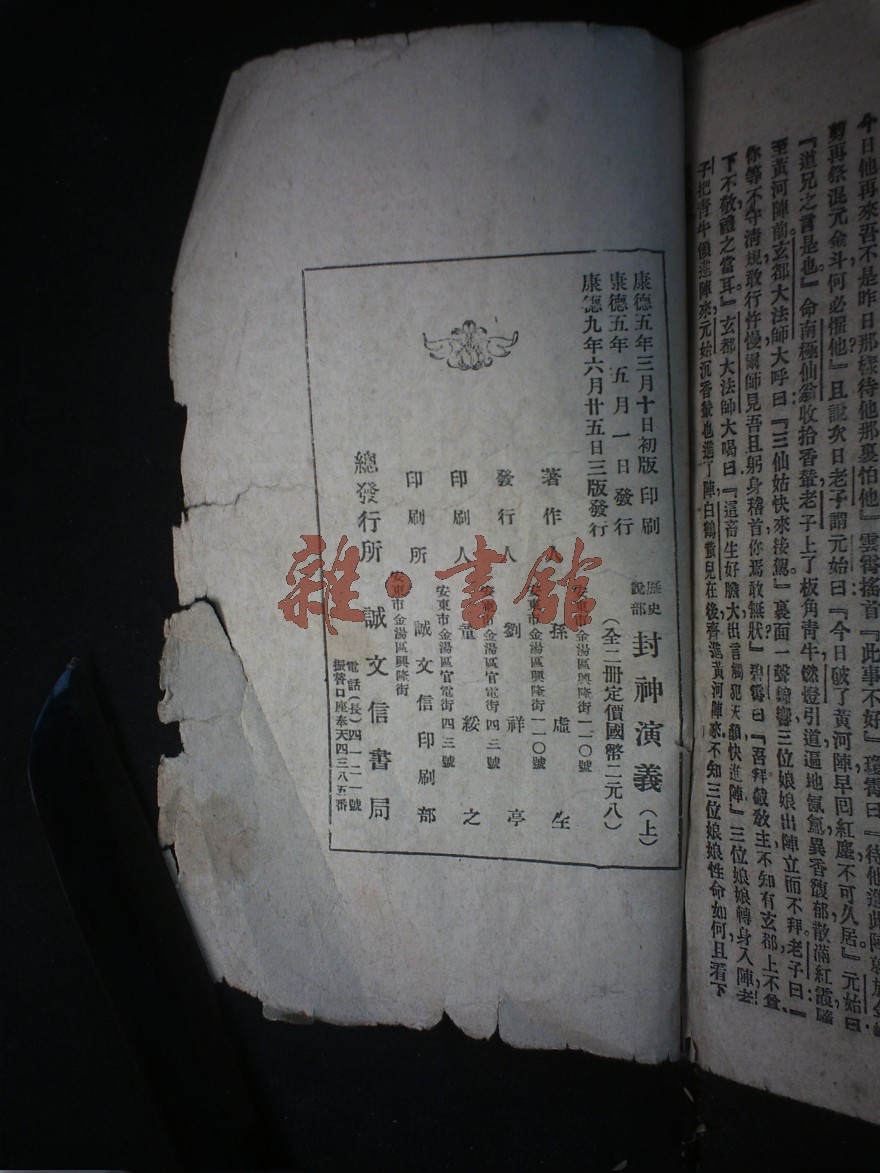 今日他再來吾不是昨日那樣待他那裏怕他』雲霄搖首『此事不好』瓊霄曰『待他進此陣
剪再祭混元金斗何必懼他』且說次日老子謂元始曰『今日破了黃河陣早回紅塵不可久居』元始曰
『道兄之言是也』命南極仙翁收拾香輦老子上了板角青牛燃燈引道遍地氤氳異香馥郁散滿紅霞
至黃河陣前玄都大法師大呼曰『三仙姑快來接駕』裏面一聲鐘響三位娘娘出陣立而不拜老子曰『
你等不守清規敢行忤慢爾師見吾且躬身稽首你焉敢無狀』碧霄曰『吾拜截教主不知有玄都上不尊
下不敬禮之當耳』玄都大法師大喝曰『這畜生好膽大出言觸犯天顏快進陣』三位娘娘轉身入陣老
子把青牛領進陣來元始沉香輦也進了陣白鶴童兒在後齊進黃河陣來不知三位娘娘性命如何且看下
歷史說部 封神演義(上)
(全二册定價國幣二元八)
康德五年三月十日初版印刷
康德五年五月一日發行
康德九年六月廿五日三版發行
安東市金湯區興隆街一一〇號
著作人 孫虛生
安東市金湯區興隆街一一〇號
發行人 劉祥亭
安東市金湯區官電街四三號
印刷人 董綏之
安東市金湯區官電街四三號
印刷所 誠文信印刷部
安東市金湯區興隆街
總發行所 誠文信書局
電話(長)四一二一號
振替口座奉天四三八五番
雜·書館